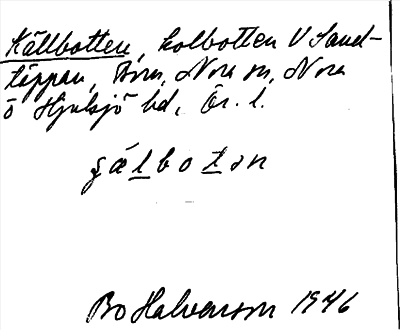 Källbotten, kolbotten V Sand-
täppan, Born, Nora sn, Nora
o Hjulsjö bd, Ör. l.
ʂälbotən
Bo Halvarson 1946